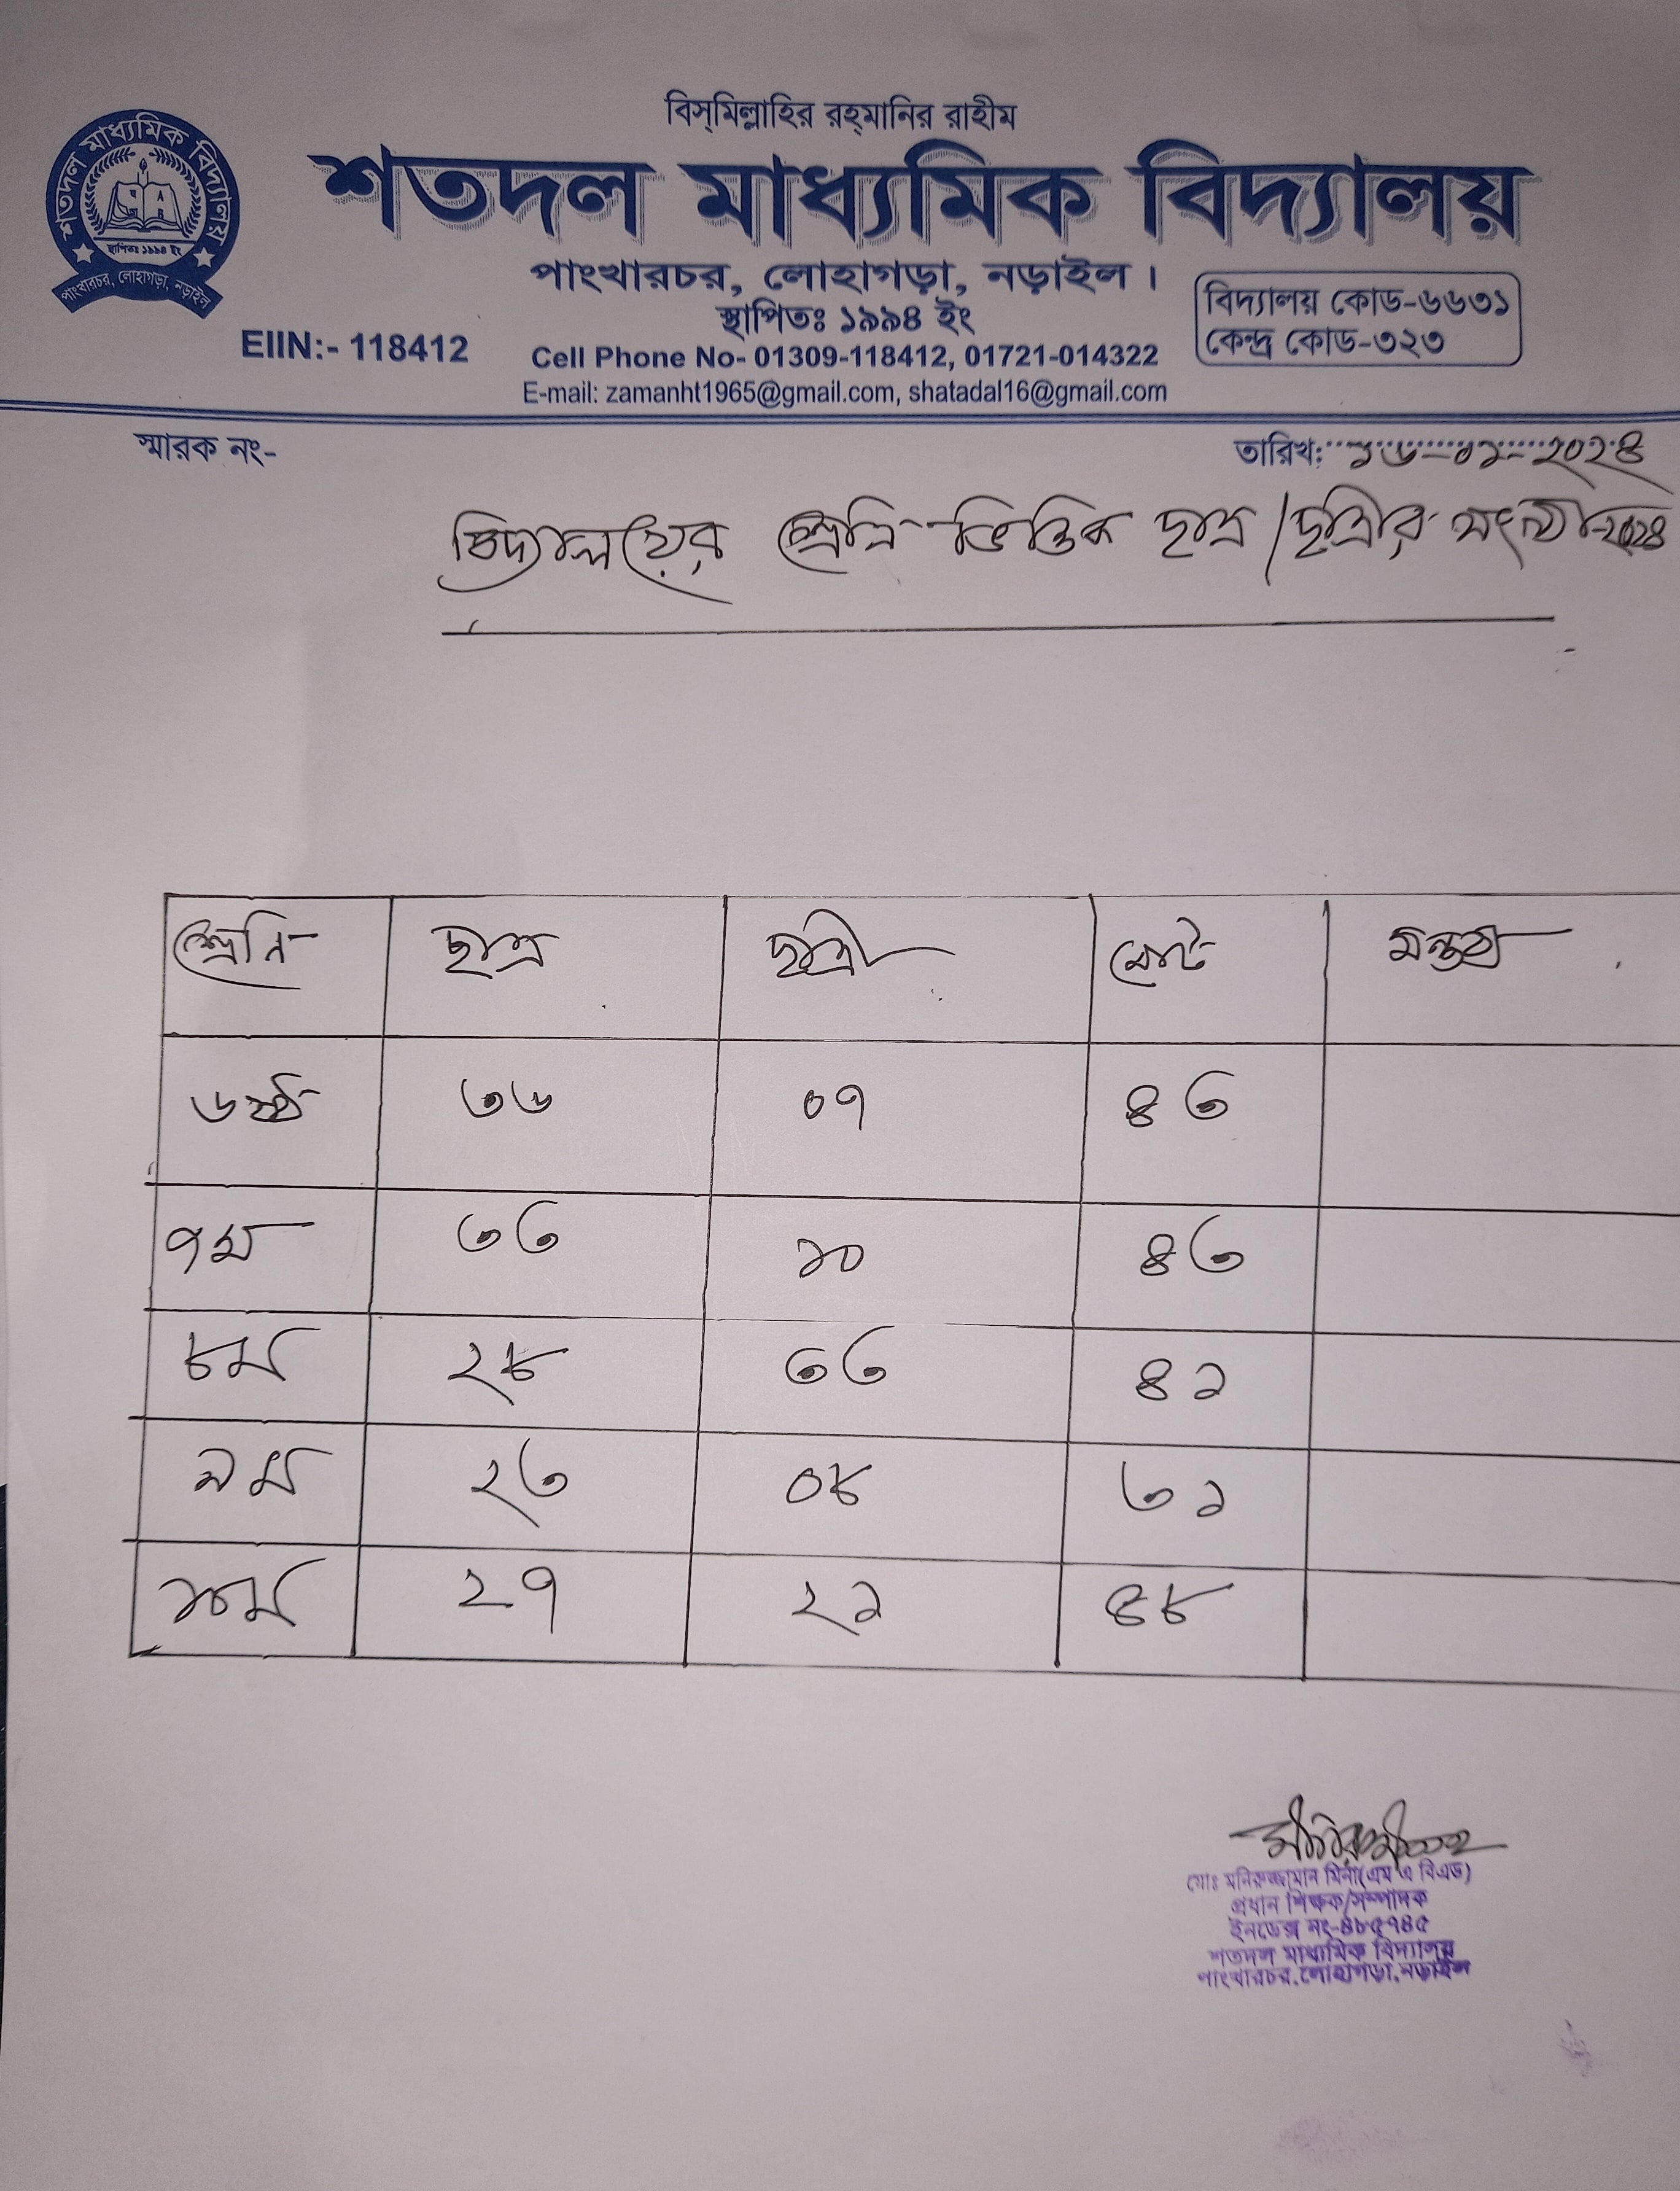 বিস্‌মিল্লাহির রহ্‌মানির রাহীম
শতদল মাধ্যমিক বিদ্যালয়
শতদল মাধ্যমিক বিদ্যালয়
স্থাপিতঃ ১৯৯৪ ইং
পাংখারচর, লোহাগড়া, নড়াইল
পাংখারচর, লোহাগড়া, নড়াইল ।
স্থাপিতঃ ১৯৯৪ ইং
বিদ্যালয় কোড-৬৬৩১
কেন্দ্র কোড-৩২৩
EIIN:- 118412
Cell Phone No- 01309-118412, 01721-014322
E-mail: zamanht1965@gmail.com, shatadal16@gmail.com
স্মারক নং-
তারিখ: ১৬-০১-২০২৪
বিদ্যালয়ের শ্রেনি ভিত্তিক ছাত্র/ছাত্রীর সংখ্যা-২০২৪
শ্রেনি ছাত্র ছাত্রী মোট মন্তব্য
৬ষ্ঠ ৩৬ ০৭ ৪৩
৭ম ৩৩ ১০ ৪৩
৮ম ২৮ ১৩ ৪১
৯ম ২৩ ০৮ ৩১
১০ম ২৭ ২১ ৪৮
মোঃ মনিরুজ্জামান মিনা(এম এ বিএড)
প্রধান শিক্ষক/সম্পাদক
ইনডেক্স নং-৪৮৫৭৪৫
শতদল মাধ্যমিক বিদ্যালয়
পাংখারচর,লোহাগড়া,নড়াইল